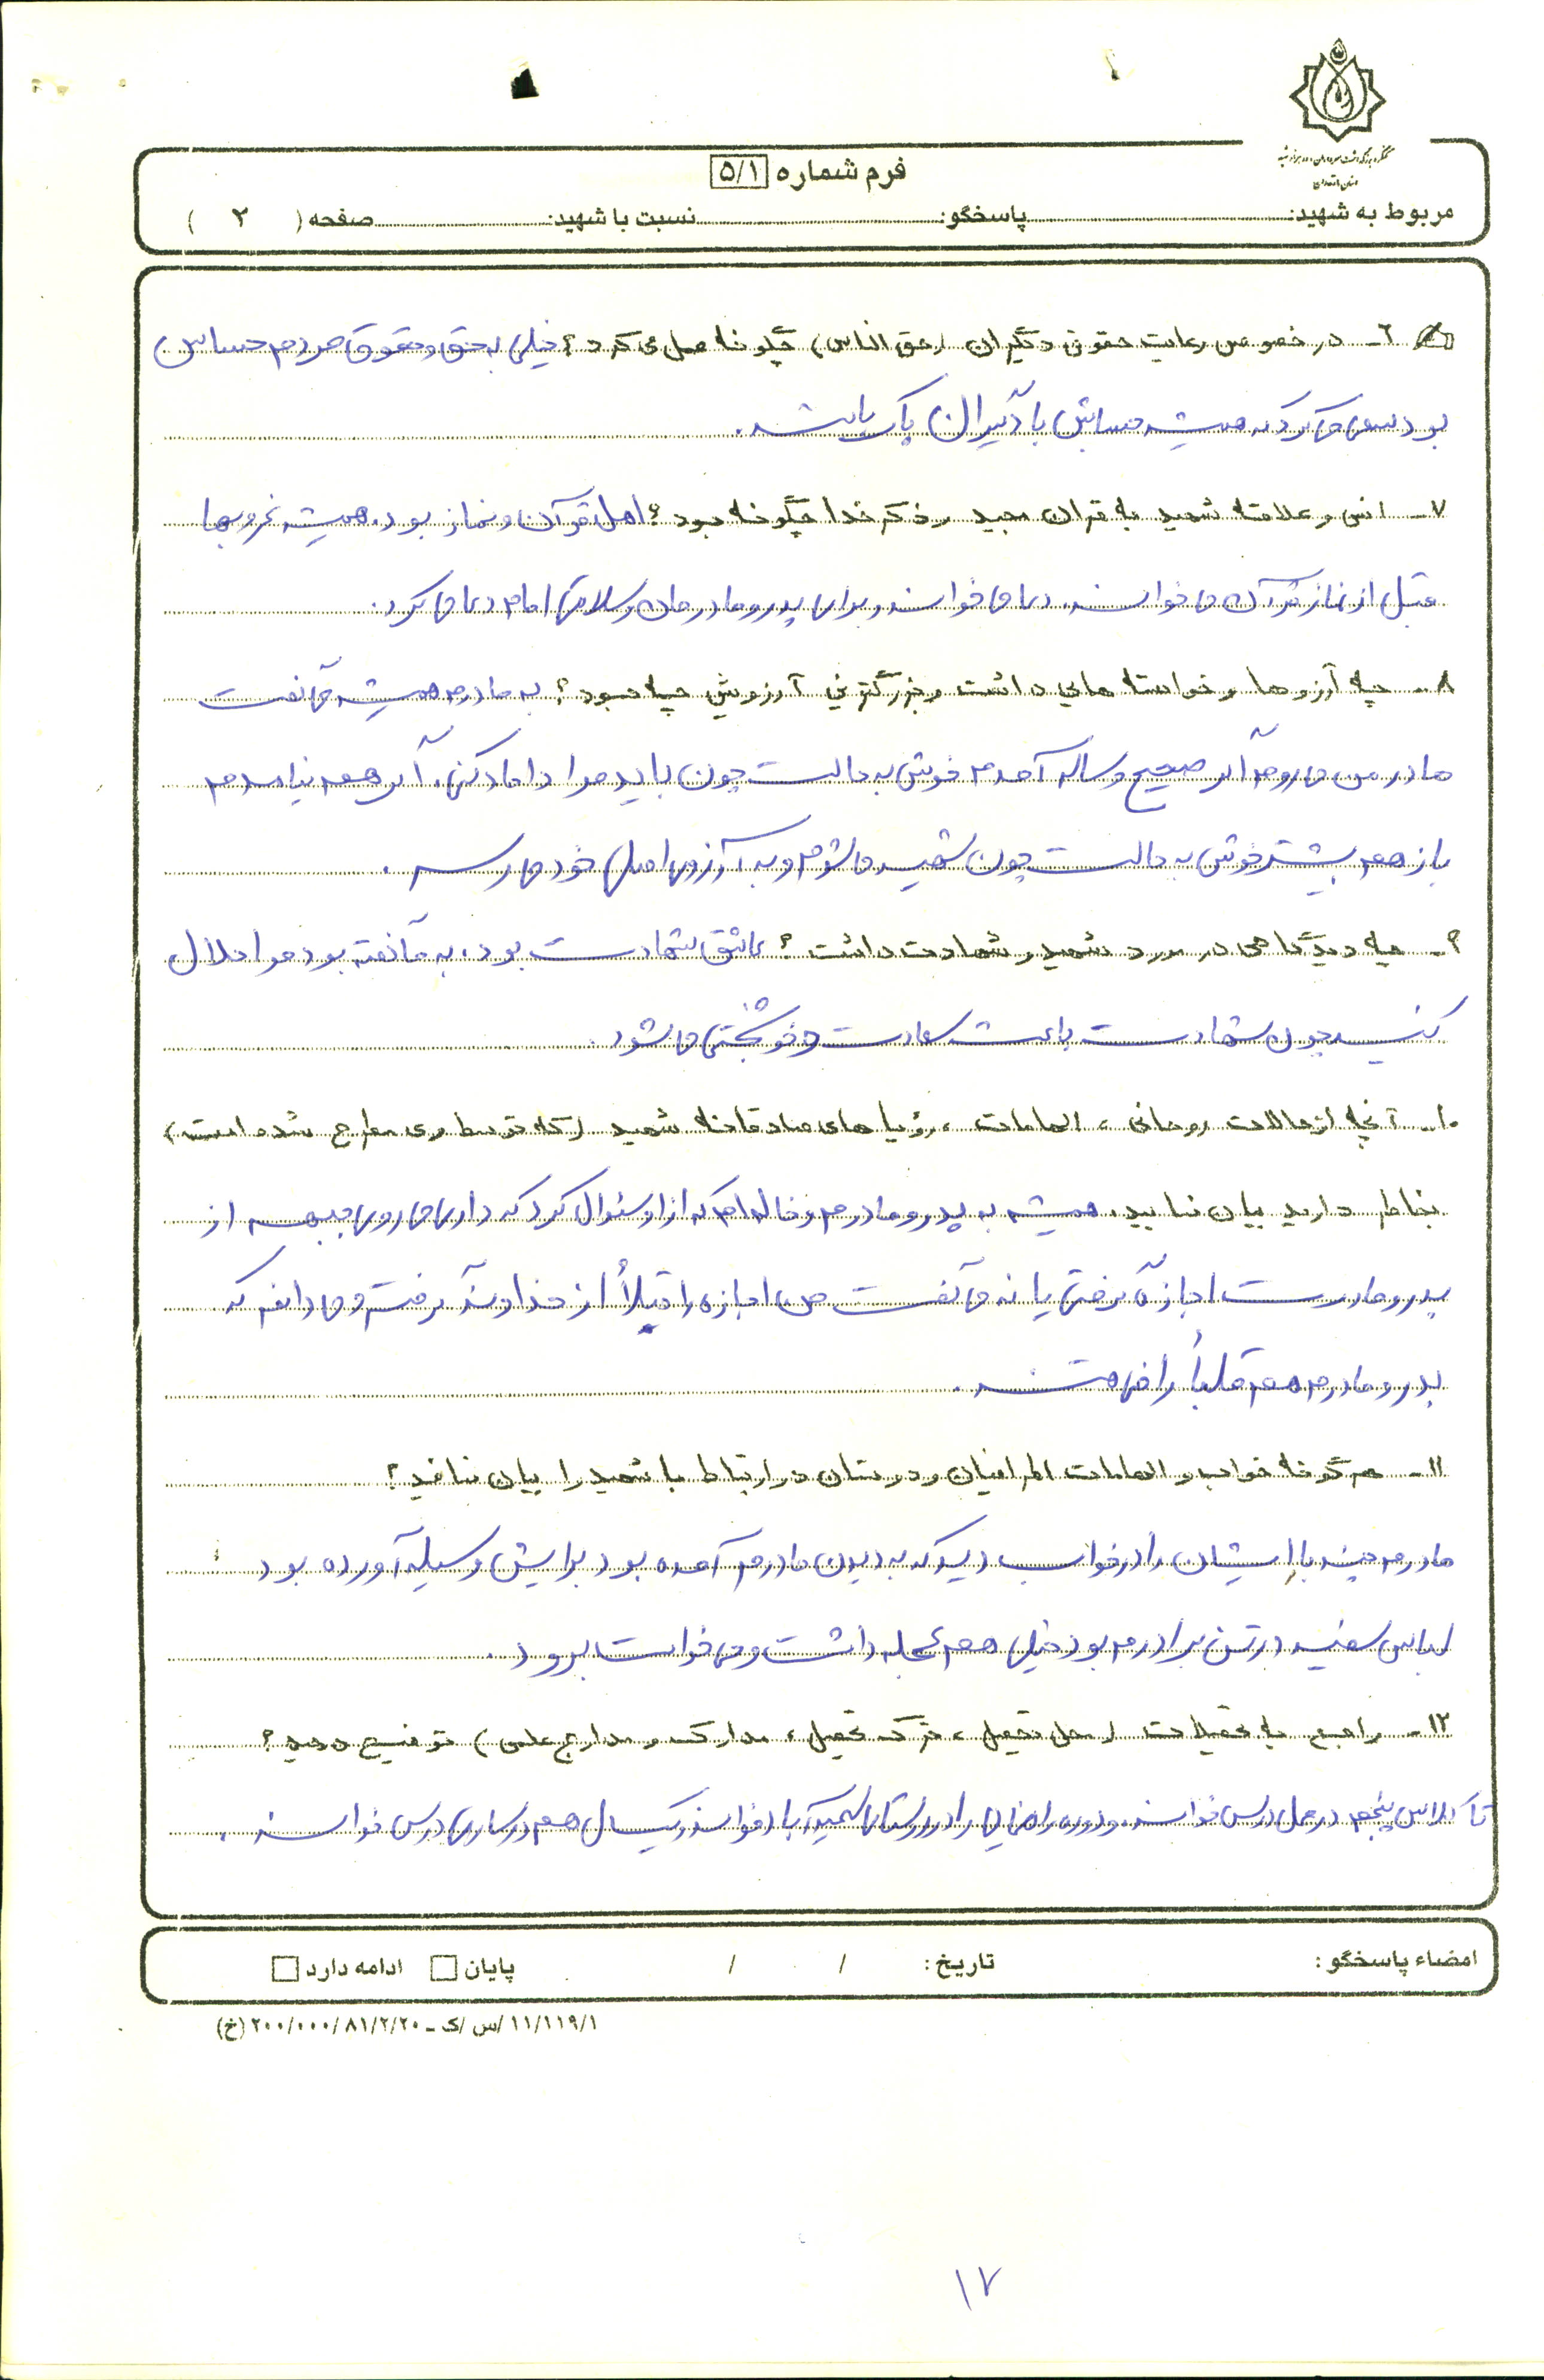 کنگره بزرگداشت سرداران و ده هزار شهید
استان مازندران
فرم شماره ۵/۱
مربوط به شهید: پاسخگو: نسبت با شهید: صفحه ( ۲ )
۶- در خصوص رعایت حقوق دیگران (حق الناس) چگونه عمل می کرد؟ خیلی به حق و حقوق مردم حساس
بود سعی می کرد که همیشه حسابش با دیگران پاک باشد.
۷- انس و علاقه شهید به قرآن مجید و ذکر خدا چگونه بود؟ اهل قرآن و نماز بود. همیشه غروبها
قبل از نماز قرآن می خواند. دعا می خواند و برای پدر و مادرمان و سلامتی امام دعا می کرد.
۸- چه آرزوها و خواسته هایی داشت و بزرگترین آرزویش چه بود؟ به مادرم همیشه می گفت
مادر من می روم اگر صحیح و سالم آمدم خوش به حالت چون باید مرا داماد کنی. اگر هم نیامدم
باز هم بیشتر خوش به حالت چون شهید می شوم و به آرزوی اصلی خود می رسم.
۹- چه دیدگاهی در مورد شهید و شهادت داشت؟ عاشق شهادت بود. به ما گفته بود مرا حلال
کنید چون شهادت باعث سعادت و خوشبختی می شود.
۱۰- آنچه از حالات روحانی، الهامات، رؤیاهای صادقانه شهید (که توسط وی مطرح شده است)
بخاطر دارید بیان نمایید. همیشه به پدر و مادرم و خاله ام که از او سئوال کرد که داری می روی جبهه از
پدر و مادرت اجازه گرفتی یا نه می گفت من اجازه را قبلاً از خداوند گرفتم و می دانم که
پدر و مادرم هم قلباً راضی هستند.
۱۱- هرگونه خواب و الهامات اطرافیان و دوستان در ارتباط با شهید را بیان نمائید؟
مادرم چند بار ایشان را در خواب دید که به دیدن مادرم آمده بود برایش وسیله آورده بود
لباس سفید در تن برادرم بود خیلی هم عجله داشت و می خواست برود.
۱۲- راجع به تحصیلات (محل تحصیل، ترک تحصیل، مدارک و مدارج علمی) توضیح دهید؟
تا کلاس پنجم در محل درس خواند. و دوره راهنمایی را در روستای خواند و یکسال هم در ساری درس خواند.
امضاء پاسخگو: تاریخ: / / پایان ادامه دارد
۱۱/۱۱۹/۱/س/ک - ۲۰۰/۰۰۰/۸۱/۲/۲۰ (خ)
۱۷